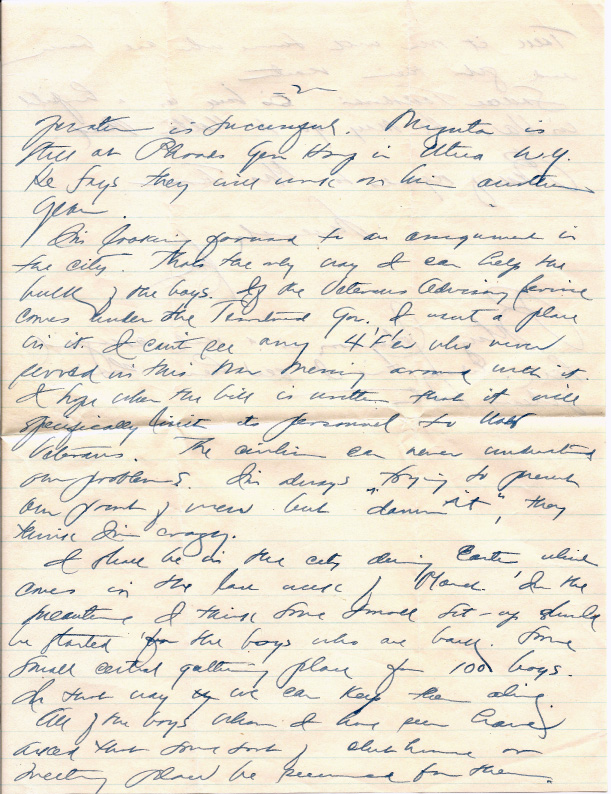 -2-
is successful. is
still at Rhoads Gen Hosp in Utica N.Y.
He says they will work on him another
year.
I'm looking forward to an assignment in
the city. Thats the only way I can help the
bulk of the boys. If the Veterans Advisory Service
comes under the Territorial Gov. I want a place
in it. I can't see any 4'F'er who never
served in this War messing around with it.
I hope when the bill is written that it will
specifically limit its personnel to
Veterans. The civilian can never understand
our problems. I'm always trying to present
our point of view but "damn it", they
think I'm crazy.
I shall be in the city during Easter which
comes in the last week of March. In the
meantime I think some small set-up should
be started for the boys who are back. Some
small central gathering place for 100 boys.
In that way we can keep them alive.
All of the boys whom I have seen have
asked that some sort of clubhouse or
meeting place be secured for them.